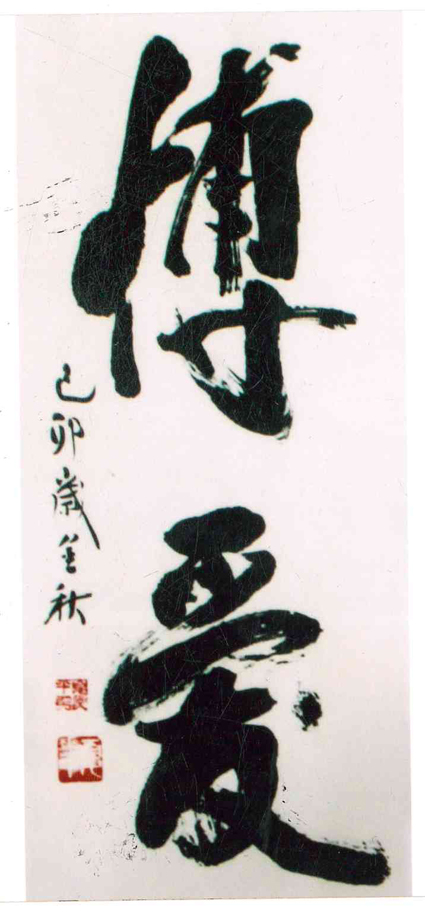 博愛
己卯歲金秋